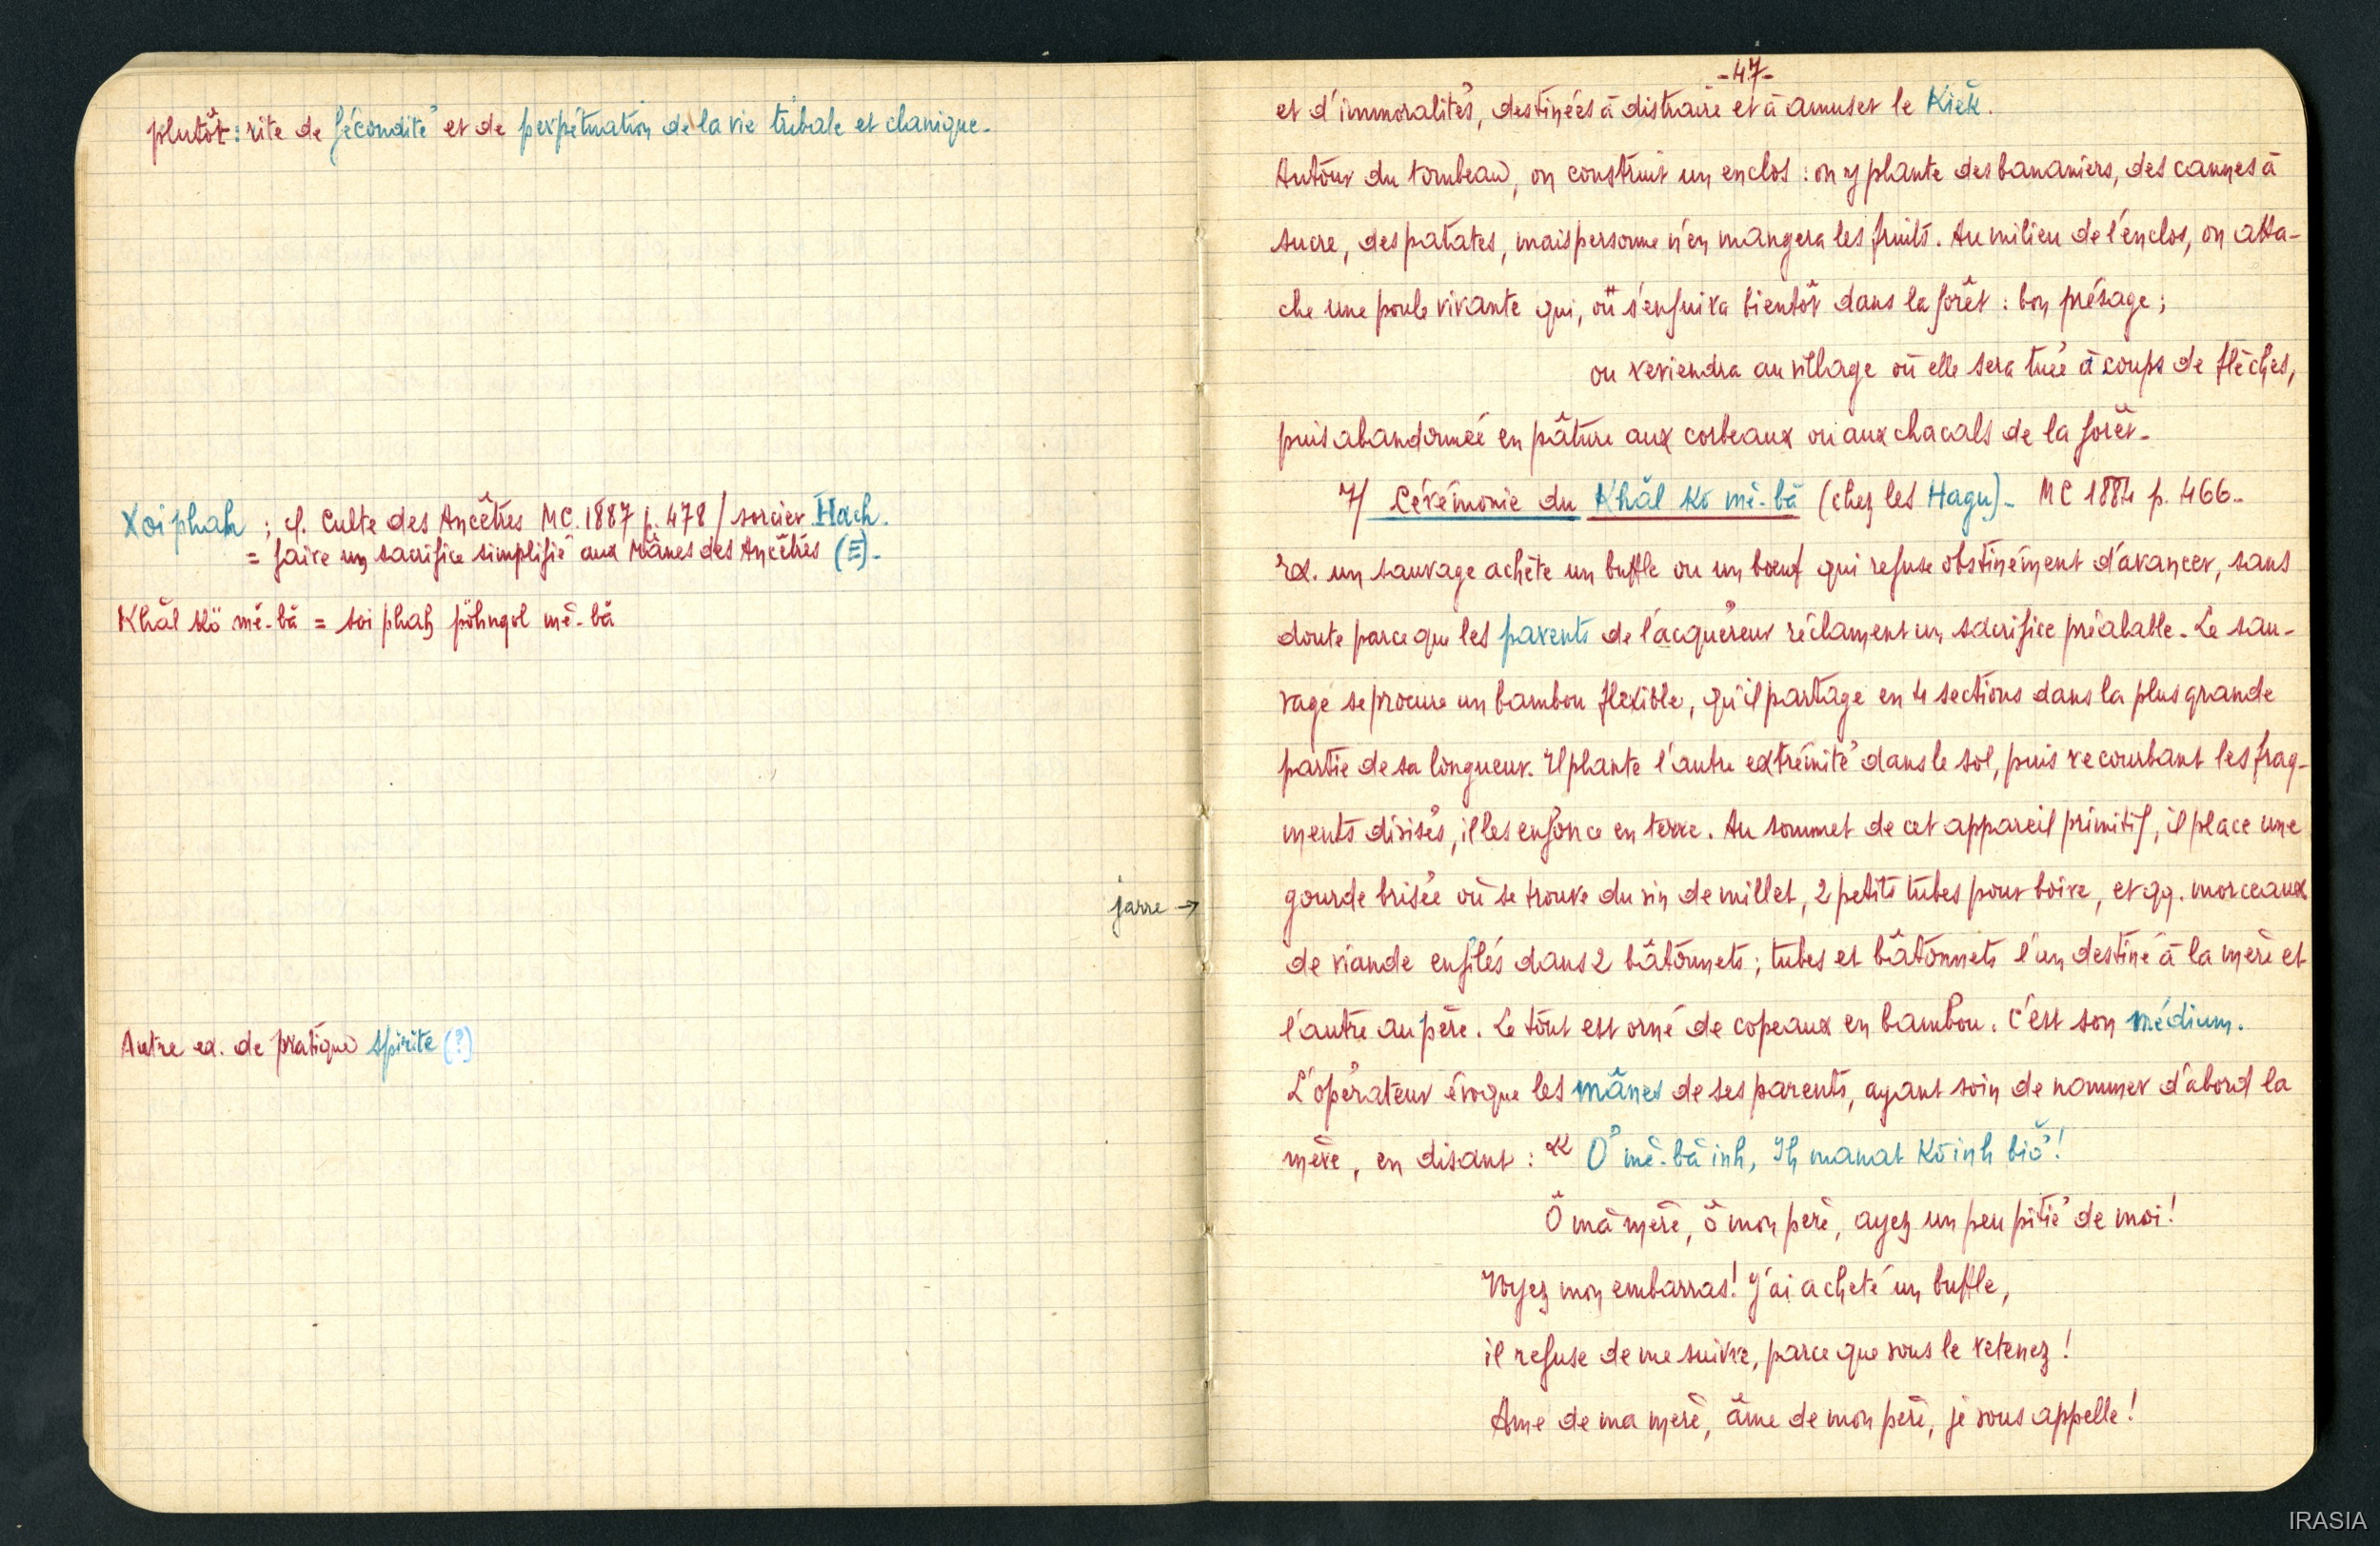 plutôt : rite de fécondité et de perpétuation de la vie tribale et clanique.
Xoi phah ; cf. Culte des Ancêtres MC. 1887 p. 478 / sorcier Hach.
= faire un sacrifice simplifié aux Mânes des Ancêtres (≡).
Khăl kö mé-bă = soi phah pöhngol mè-bă
jarre →
Autre ex. de pratique spirite (?)
-47-
et d'immoralités, destinées à distraire et à amuser le Kiek.
Autour du tombeau, on construit un enclos : on y plante des bananiers, des cannes à
sucre, des patates, mais personne n'en mangera les fruits. Au milieu de l'enclos, on atta-
che une poule vivante qui, ou s'enfuira bientôt dans la forêt : bon présage ;
ou reviendra au village où elle sera tuée à coups de flèches,
puis abandonnée en pâture aux corbeaux ou aux chacals de la forêt.
7/ Cérémonie du Khăl kö mè-bă (chez les Hagu). MC 1884 p. 466.
Ex. un sauvage achète un buffle ou un bœuf qui refuse obstinément d'avancer, sans
doute parce que les parents de l'acquéreur réclament un sacrifice préalable. Le sau-
vage se procure un bambou flexible, qu'il partage en 4 sections dans la plus grande
partie de sa longueur. Il plante l'autre extrémité dans le sol, puis recourbant les frag-
ments divisés, il les enfonce en terre. Au sommet de cet appareil primitif, il place une
gourde brisée où se trouve du vin de millet, 2 petits tubes pour boire, et qq. morceaux
de viande enfilés dans 2 bâtonnets ; tubes et bâtonnets l'un destiné à la mère et
l'autre au père. Le tout est orné de copeaux en bambou. C'est son médium.
L'opérateur évoque les mânes de ses parents, ayant soin de nommer d'abord la
mère, en disant : « Ô mè-bă inh, Ih manat kö inh biö !
Ô ma mère, ô mon père, ayez un peu pitié de moi !
Voyez mon embarras ! J'ai acheté un buffle,
il refuse de me suivre, parce que vous le retenez !
Ame de ma mère, âme de mon père, je vous appelle !
IRASIA